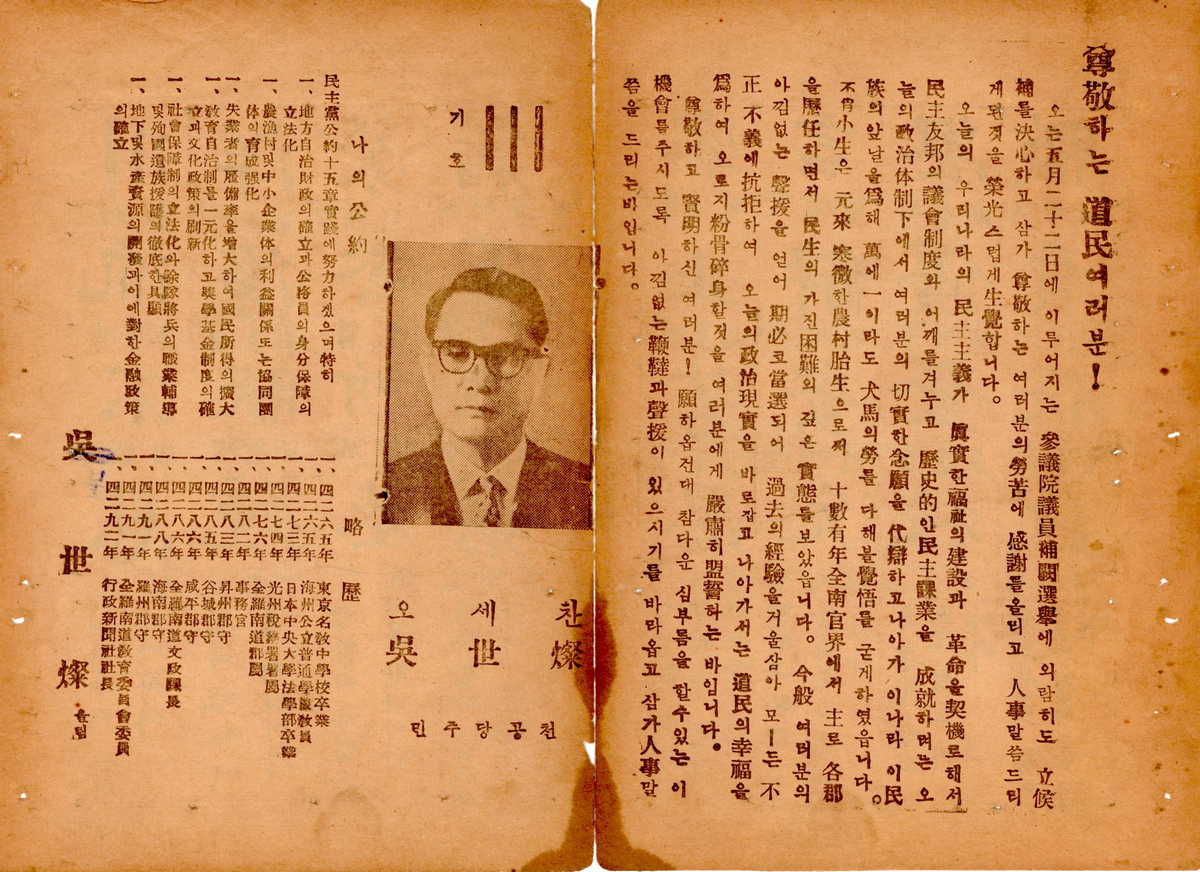 尊敬하는 道民여러분!
오는五月二十二日에 이루어지는 參議院議員補闕選擧에 외람히도 立候
補를決心하고 삼가 尊敬하는 여러분의勞苦에 感謝를올리고 人事말씀드리
게된것을 榮光스럽게生覺합니다。
오늘의 우리나라의 民主主義가 眞實한福祉의建設과 革命을契機로해서
民主友邦의議會制度와 어깨를겨누고 歷史的인民主課業을 成就하려는 오
늘의政治体制下에서 여러분의 切實한念願을 代辯하고나아가 이나라 이民
族의앞날을爲해 萬에一이라도 犬馬의勞를 다해볼覺悟를 굳게하였읍니다。
不肖小生은 元來 寒微한農村胎生으로써 十數有年全南官界에서 主로 各郡
을歷任하면서 民生의 가진困難의 깊은 實態를보았읍니다。 今般 여러분의
아낌없는 聲援을 얻어 期必코當選되어 過去의經驗을거울삼아 모ー든 不
正 不義에抗拒하여 오늘의政治現實을 바로잡고 나아가서는 道民의幸福을
爲하여 오로지粉骨碎身할것을 여러분에게 嚴肅히盟誓하는 바입니다。
尊敬하고 賢明하신 여러분! 願하옵건대 참다운 심부름을 할수있는이
機會를주시도록 아낌없는鞭韃과聲援이 있으시기를 바라옵고 삼가人事말
씀을 드리는바입니다。
기호
|||
찬 세 오
燦 世 吳
민주당공천
나의公約
民主黨公約十五章實踐에努力하겠으며特히
一、地方自治財政의確立과公務員의身分保障의
立法化
一、農漁村및中小企業体의利益關係또는協同團
体의育成强化
一、失業者의雇傭率을增大하여國民所得의擴大
一、敎育自治制를一元化하고奬學基金制度의確
立과文化政策의刷新
一、社會保障制의立法化와除隊將兵의職業輔導
및殉國遺族援護의徹底한具顯
一、地下및水產資源의開發과이에對한金融政策
의確立
略歷
一、四二六五年 東京名敎中學校卒業
一、四二六五年 海州公立普通學校敎員
一、四二七三年 日本中央大學法學部卒業
一、四二七四年 光州稅務署屬
一、四二七六年 全羅南道郡屬
一、四二八二年 事務官
一、四二八三年 昇州郡守
一、四二八五年 谷城郡守
一、四二八六年 咸平郡守
一、四二八六年 全羅南道文政課長
一、四二八八年 海南郡守
一、四二九一年 羅州郡守
一、四二九一年 全羅南道敎育委員會委員
一、四二九二年 行政新聞社社長
吳世燦 올림